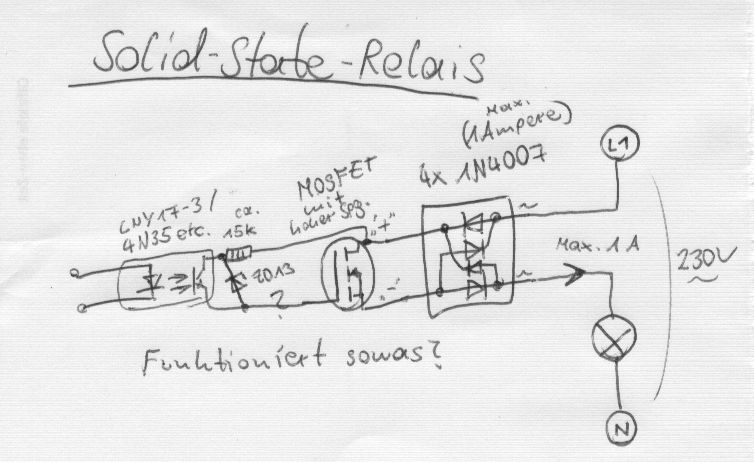 Solid-State-Relais
Max.
(1 Ampere)
4x 1N4007
L1
MOSFET
mit
hoher Spg.
CNY17-3/
4N35 etc.
ca.
15k
"+"
~
Max. 1A
230V
~
ZD13
?
"-"
~
Funktioniert sowas?
N